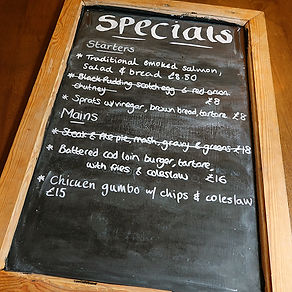 Specials
Starters
* Traditional smoked salmon,
Salad & bread £8.50
* Black pudding scotch egg & red onion
chutney £8
* Sprats w/ vinegar, brown bread, tartare £8
Mains
* Steak & Ale pie, mash, gravy & greens £18
* Battered cod loin burger, tartare,
with fries & coleslaw £16
* Chicken gumbo w/ chips & coleslaw
£15